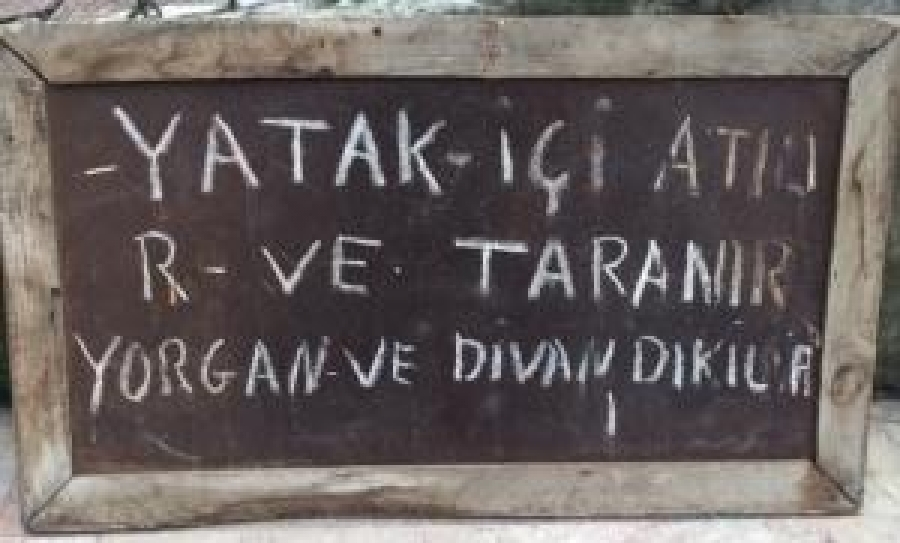 -YATAK-İÇİ ATILI
R- VE. TARANIR
YORGAN-VE DİVAN DİKİLİR